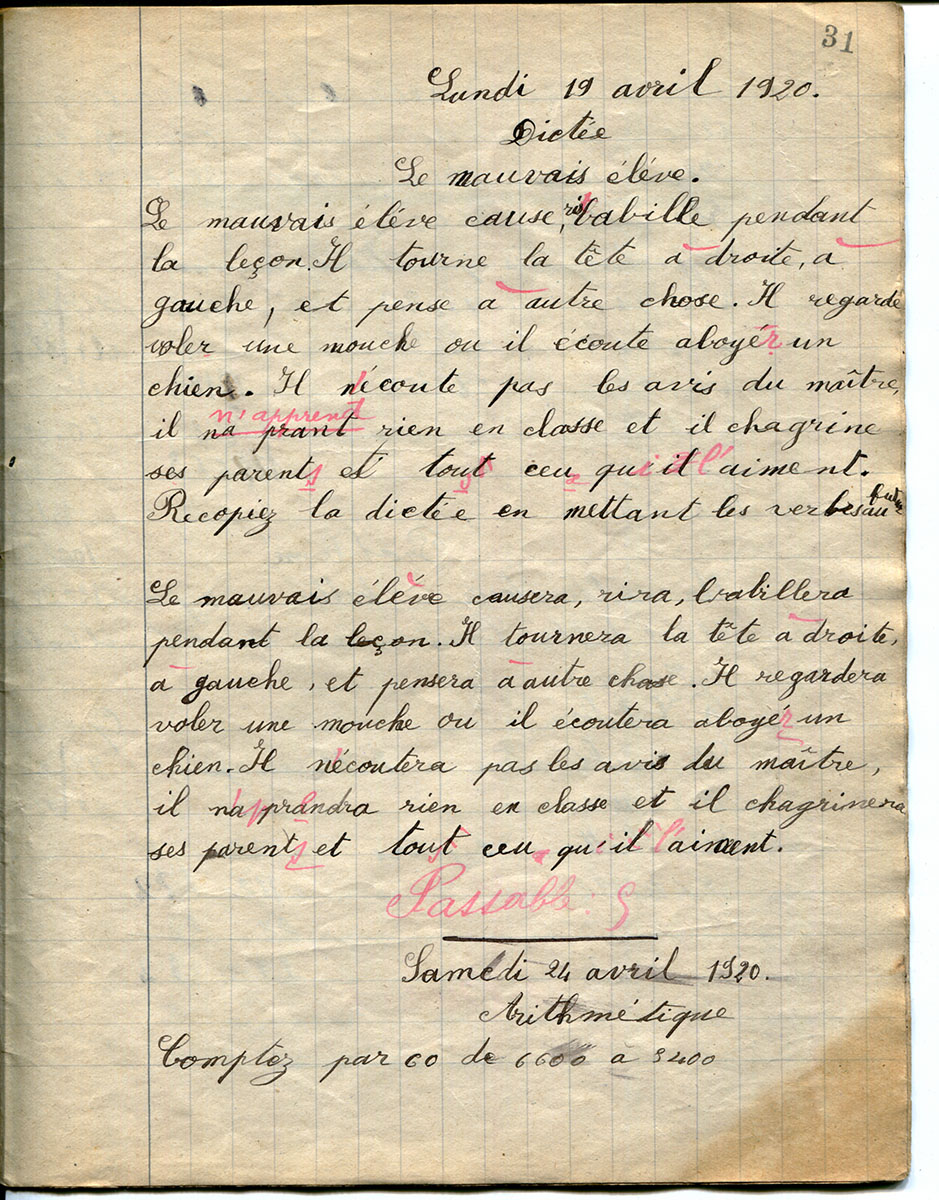 31
Lundi 19 avril 1920.
Dictée
Le mauvais éléve.
Le mauvais éléve cause, rit, babille pendant
la leçon. Il tourne la tête à droite, à
gauche, et pense à autre chose. Il regarde
voler une mouche ou il écoute aboyér un
chien. Il n'écoute pas les avis du maître,
n'apprend
il na prant rien en classe et il chagrine
ses parents et tout ceu qu'il l'aiment.
Recopiez la dictée en mettant les verbes au futur
Le mauvais élève causera, rira, babillera
pendant la leçon. Il tournera la tête à droite,
à gauche, et pensera à autre chose. Il regardera
voler une mouche ou il écoutera aboyér un
chien. Il n'écoutera pas les avis du maître,
il n'apprendra rien en classe et il chagrinera
ses parents et tout ceu qu'il l'aiment.
Passable : 9
Samedi 24 avril 1920.
Arithmétique
Comptez par 60 de 6600 à 8400